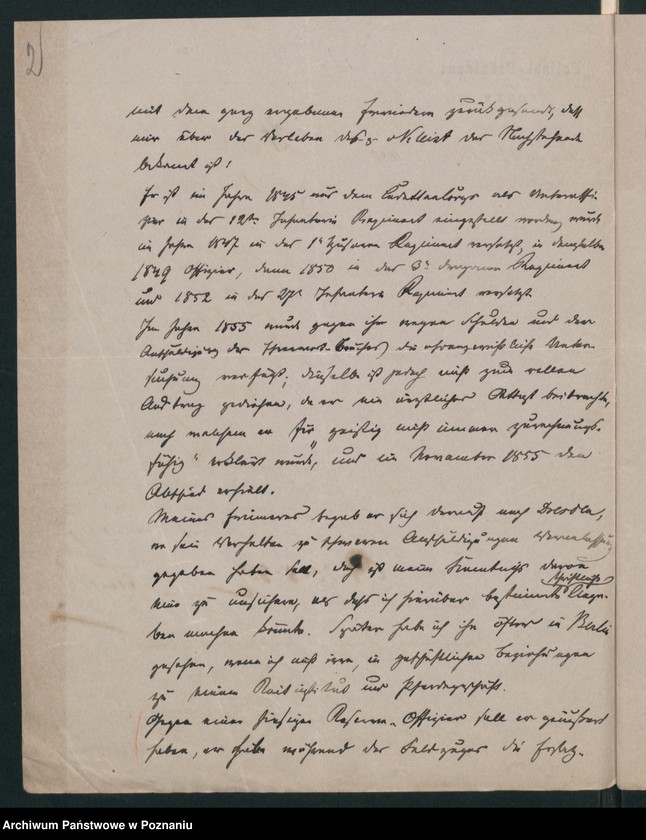 2
mit dem ganz ergebenen Erwiedern zurückgesandt, daß
mir über das Vorleben des p. v. Kleist das Nachstehende
bekannt ist!
Er ist im Jahre 1845 aus dem Cadettencorps als Unteroffi-
zier in das 12te Infanterie Regiment eingestellt worden, wurde
im Jahre 1847 in das 1te Husaren Regiment versetzt, in demselben
1849 Offizier, dann 1850 in das 3te Dragoner Regiment
und 1852 in das 27te Infanterie Regiment versetzt.
Im Jahre 1855 wurde gegen ihn wegen Schulden und der
Anschuldigung des Ehrenwort-Bruches die ehrengerichtliche Unter-
suchung verfügt; dieselbe ist jedoch nicht zum vollen
Austrag gediehen, da er ein ärztliches Attest beibrachte,
nach welchem er für „geistig nicht immer zurechnungs-
fähig" erklärt wurde, und im November 1855 den
Abschied erhielt.
Meines Erinnerns begab er sich darauf nach Dresden,
wo sein Verhalten zu schweren Anschuldigungen Veranlassung
gegeben haben soll, doch ist meine Kenntniß davon
eine zu unsichere, als daß ich hierüber bestimmte schriftliche Anga-
ben machen könnte. Später habe ich ihn öfter in Berlin
gesehen, wenn ich nicht irre, in geschäftlichen Beziehungen
zu einem Reitinstitut und Pferdegeschäft.
Gegen einen hiesigen Reserve-Offizier soll er geäußert
haben, er habe während des Feldzuges die
Archiwum Państwowe w Poznaniu